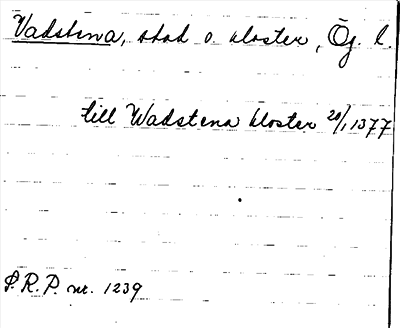 Vadstena, stad o. kloster, Ög. l.
till Wadstena kloster 20/1 1377
S.R.P. nr. 1239